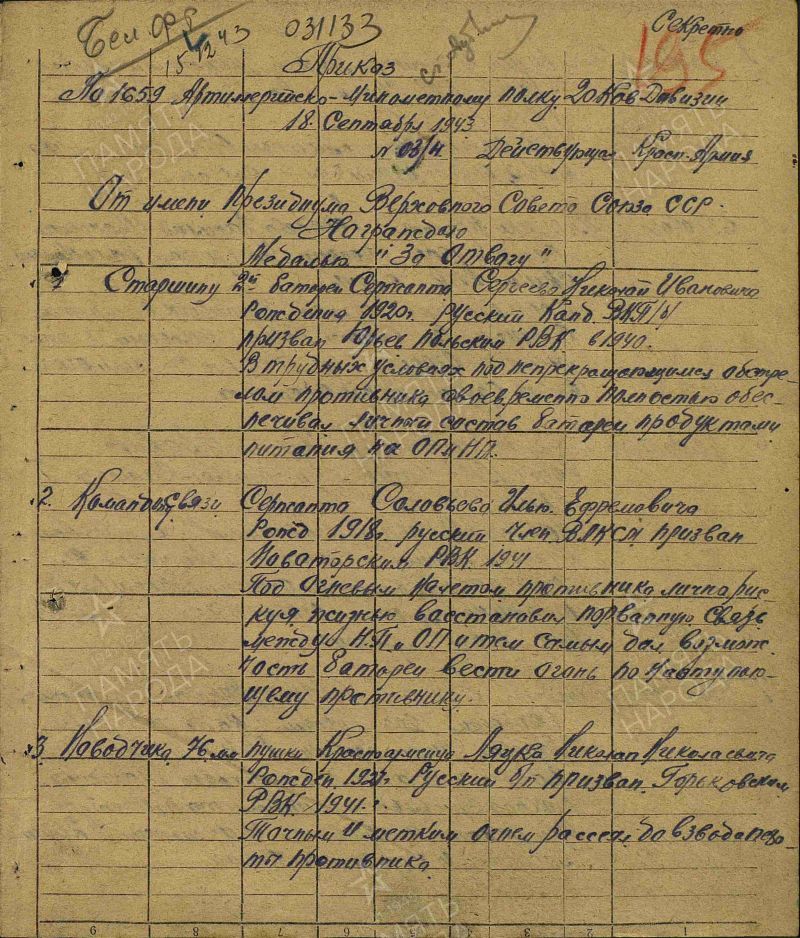 Бел фр
031133
Секретно
15.12.43
195
Приказ
По 1659 Артиллерийско-Минометному полку 2<sup>ой</sup> Кав Дивизии
18. Сентября 1943
N 03/н Действующая Красн. Армия
От имени Президиума Верховного Совета Союза ССР.
Награждаю
Медалью "За Отвагу"
1 Старшину 2ой батареи Сержанта Сергеева Николай Ивановича
Рождения 1920г. русский Канд. ВКП/б/
призван Юрьев Польским РВК в 1940.
В трудных условиях под непрекращающимся обстре-
лом противника своевременно полностью обес-
печивал личный состав батареи продуктами
питания на ОП и НП.
2. Командир связи Сержанта Соловьева Илью Ефремовича
Рожд 1918г русский член ВЛКСМ призван
РВК 1941
Под огневым налетом противника лично рис-
куя жизнью восстановил порванную связь
между НП и ОП и тем самым дал возмож-
ность батареи вести огонь по наступаю-
щему противнику.
3 Наводчика 76 мм пушки Красноармейца Николая Николаевича
Рожден 1921г Русский б/п призван Горьковским
РВК 1941 г.
Точным и метким огнем рассеял до взвода пехо-
ты противника.
9 8 7 6 5 4 3 2 1
ПАМЯТЬ
НАРОДА